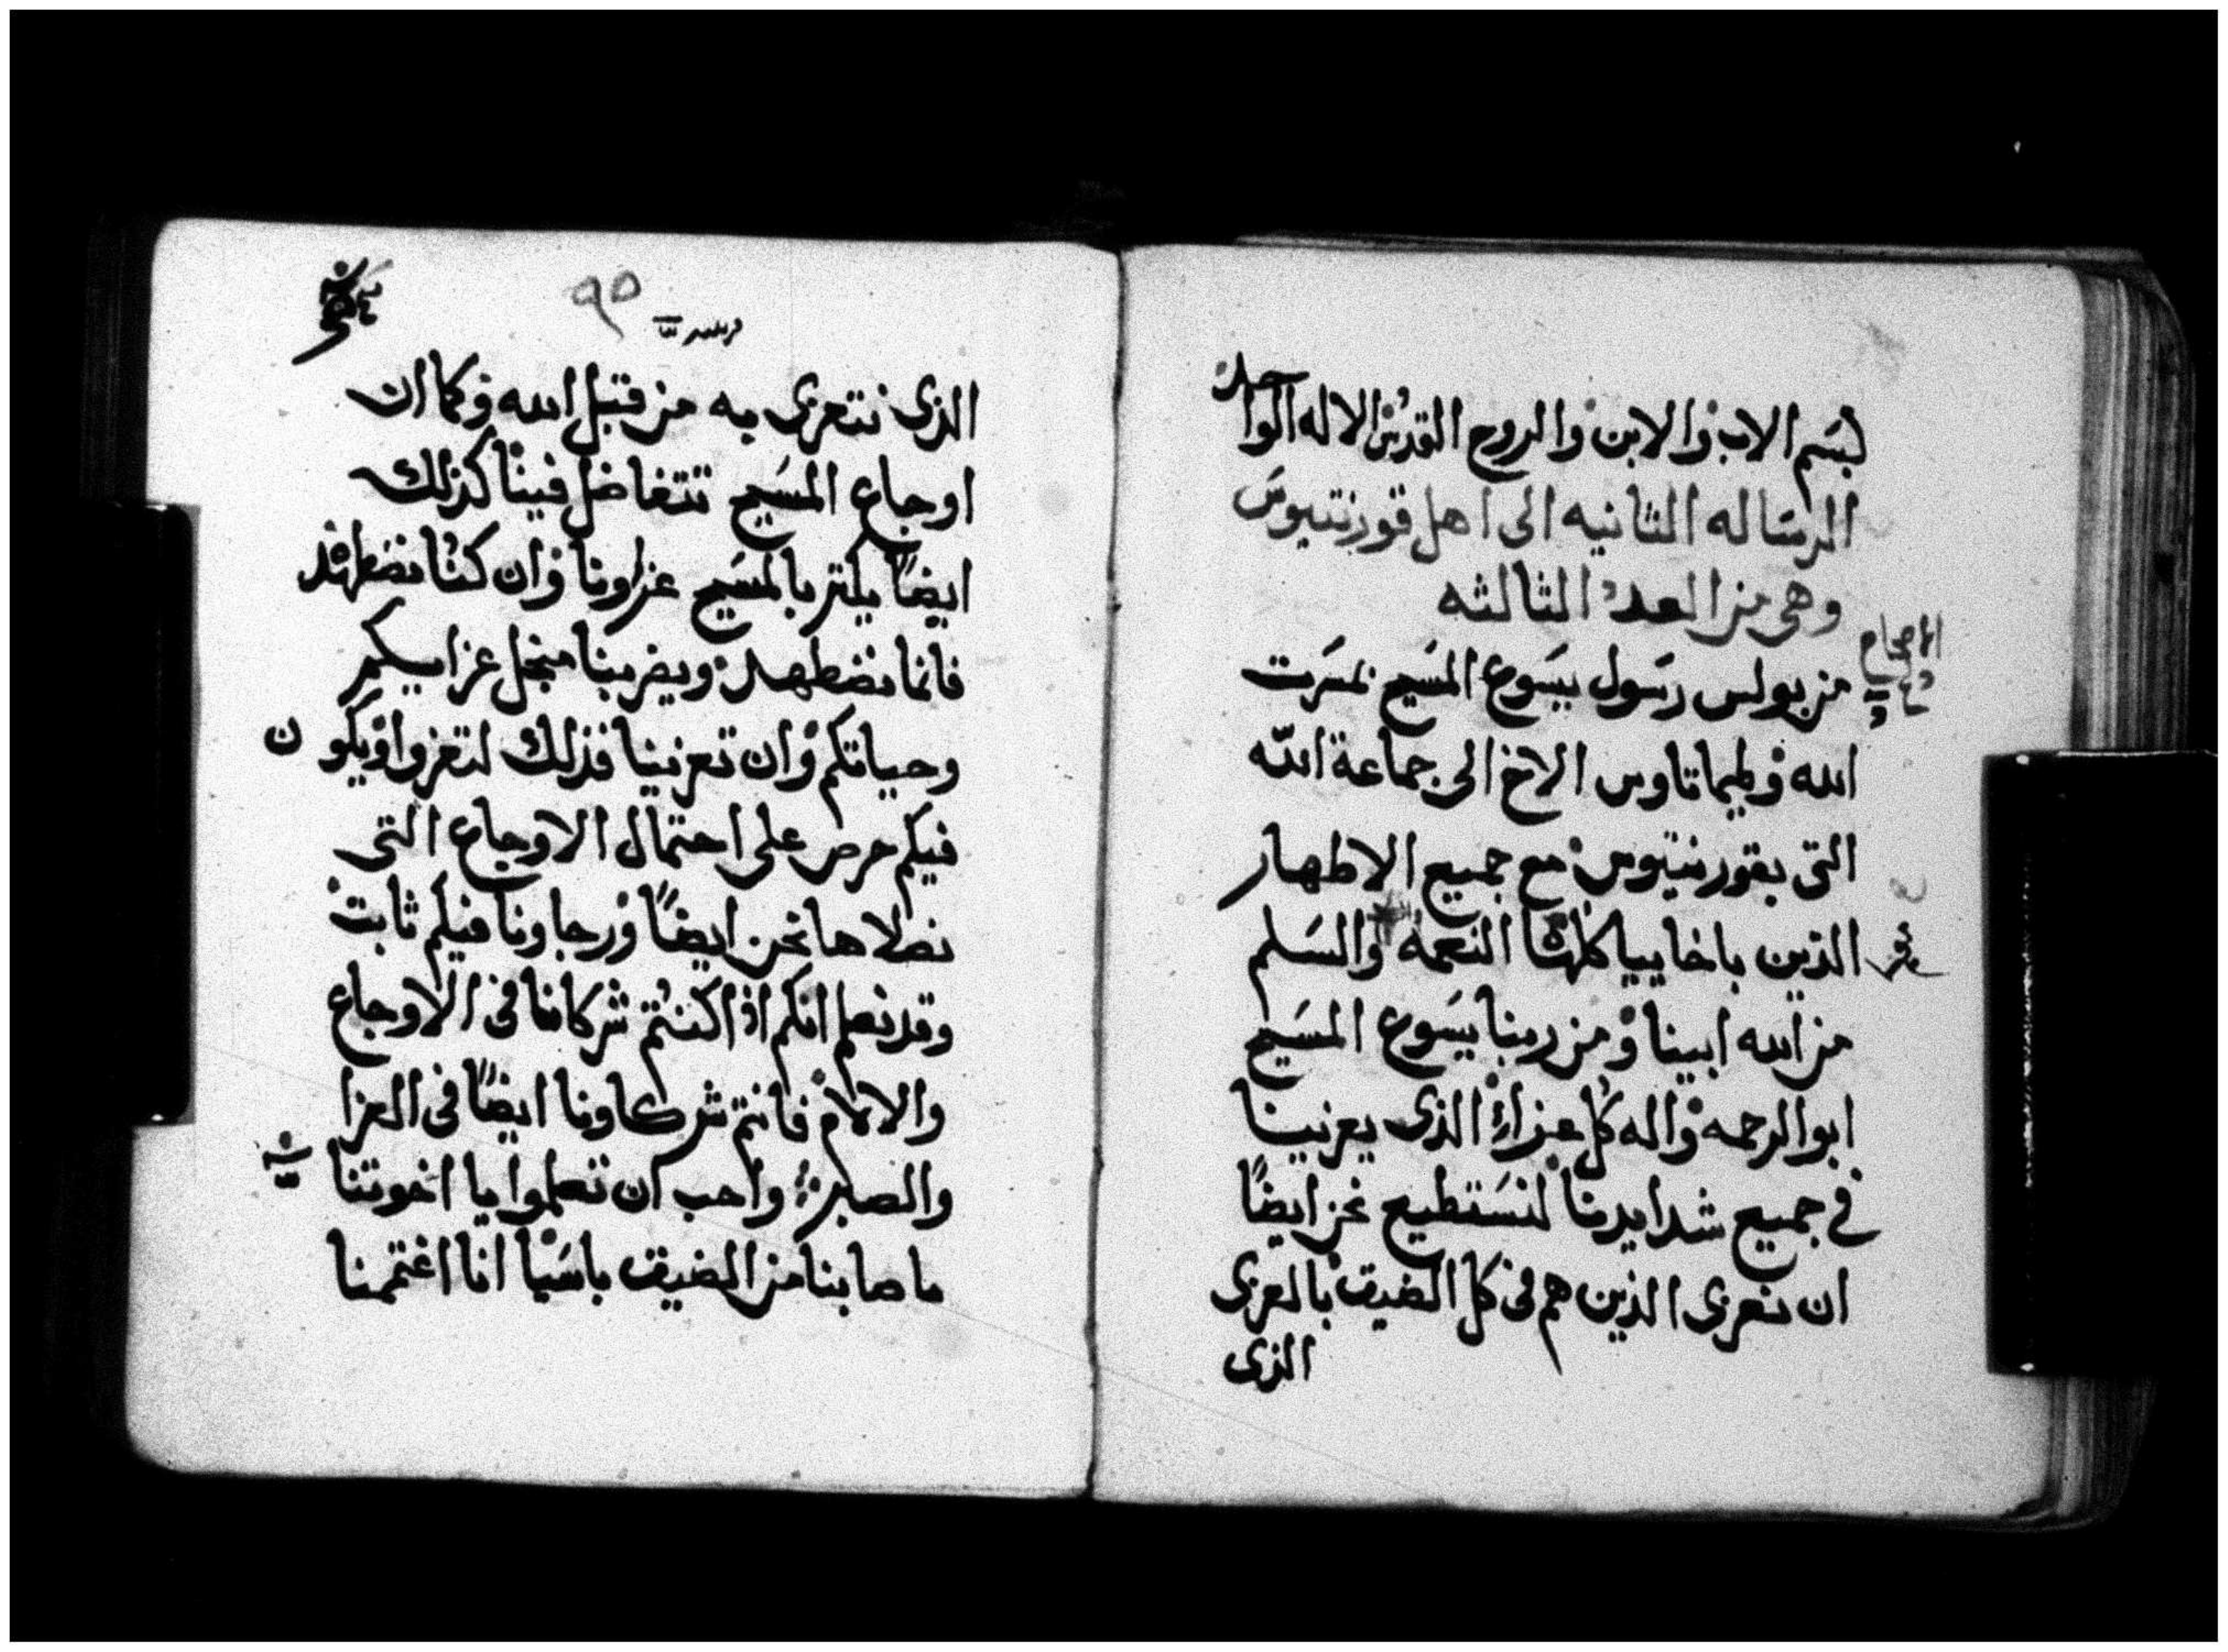 بسم الاب والابن والروح القدس الاله الواحد
الرساله الثانيه الى اهل قورنتيوس
وهى من العدد الثالثه
الاصحاح
من بولس رسول يسوع المسيح بمسرت
الله وطيماتاوس الاخ الى جماعة الله
التى بقورنتيوس مع جميع الاطهار
الذين باخاييا كلها النعمه والسلم
من الله ابينا ومن ربنا يسوع المسيح
ابو الرحمه واله كل عزاء الذى يعزينا
فى جميع شدايدنا لنستطيع نحن ايضاً
ان نعزى الذين هم فى كل الضيق بالعزى
الذى
٩٥
الذى نتعزى به من قبل الله وكما ان
اوجاع المسيح تتفاضل فينا كذلك
ايضاً يكثر بالمسيح عزاونا وان كنا نضطهد
فانما نضطهد ويضر بنا منجل عزايكم
وحياتكم وان تعزينا فذلك لتعزوا ويكون
فيكم حرص على احتمال الاوجاع التى
نصلاها نحن ايضاً ورجاونا فيكم ثابت
وقد نعلم انكم اذا كنتم شركانا فى الاوجاع
والالام فانتم شركاونا ايضاً فى العزا
والصبر واحب ان تعلموا يا اخوتنا
ماصابنا من الضيق باسيا انا اغتممنا